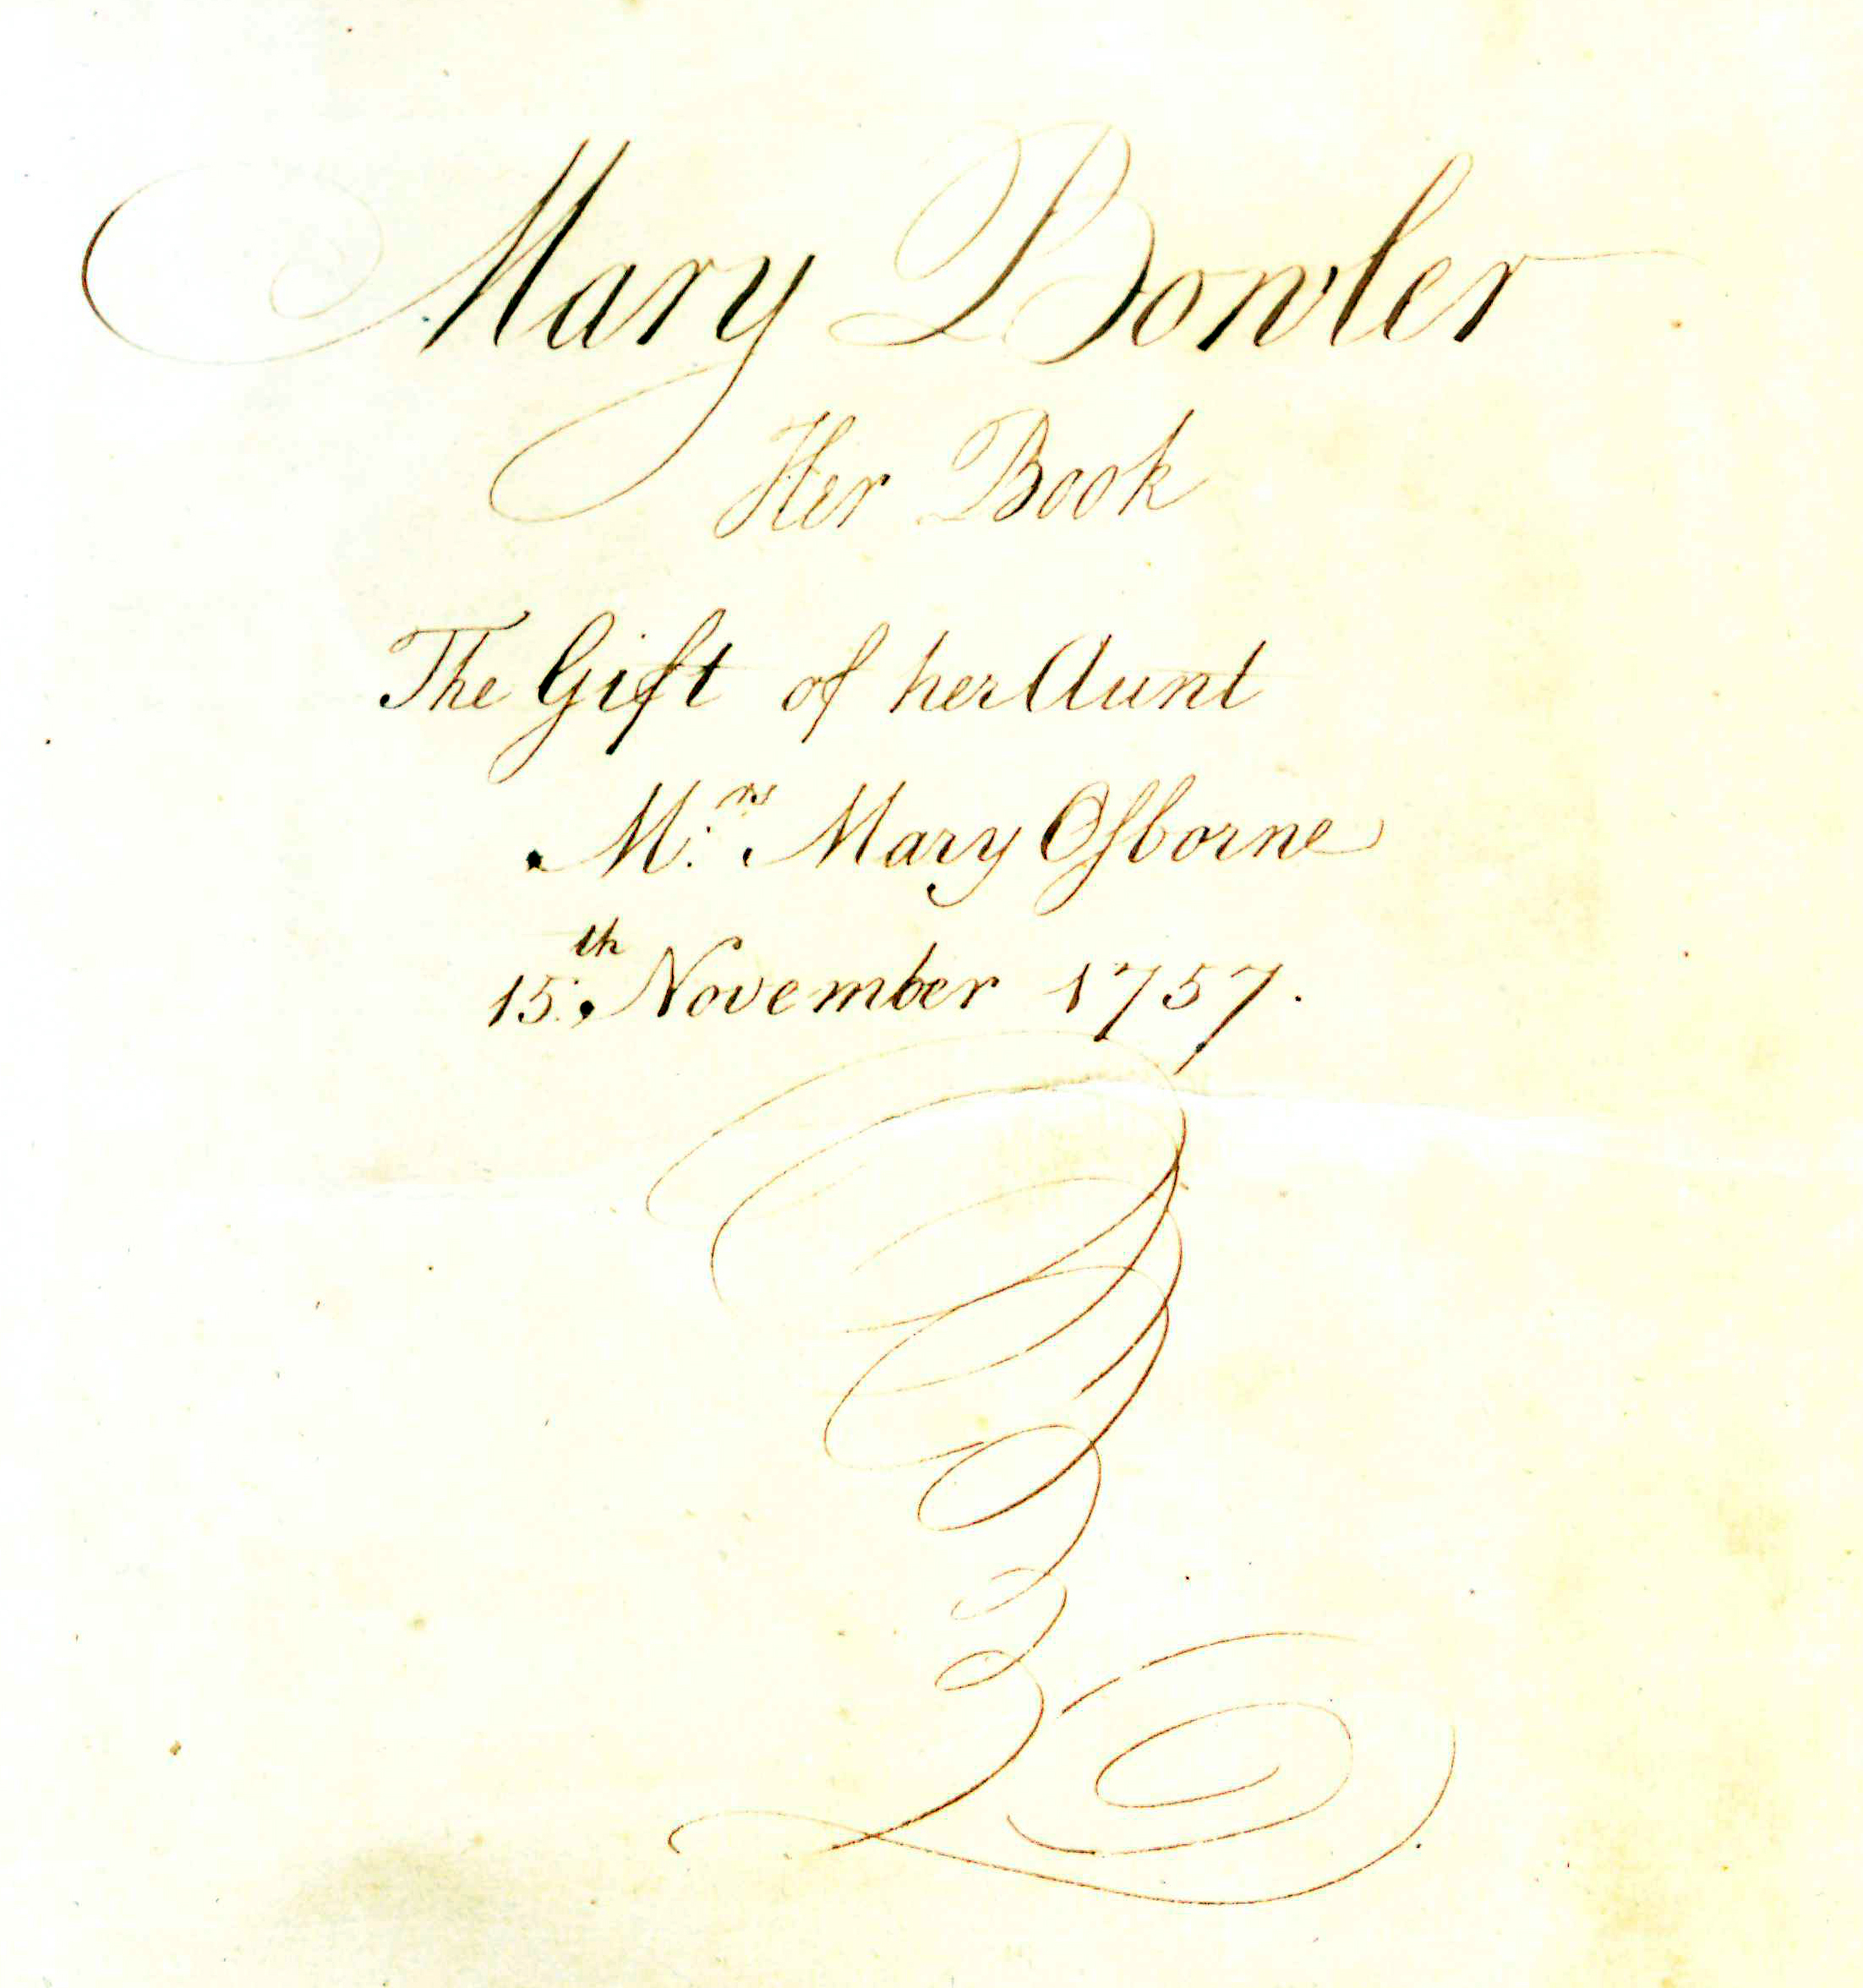 Mary Bowler
Her Book
The Gift of her Aunt
M.rs Mary Oſborne
15.th November 1757.